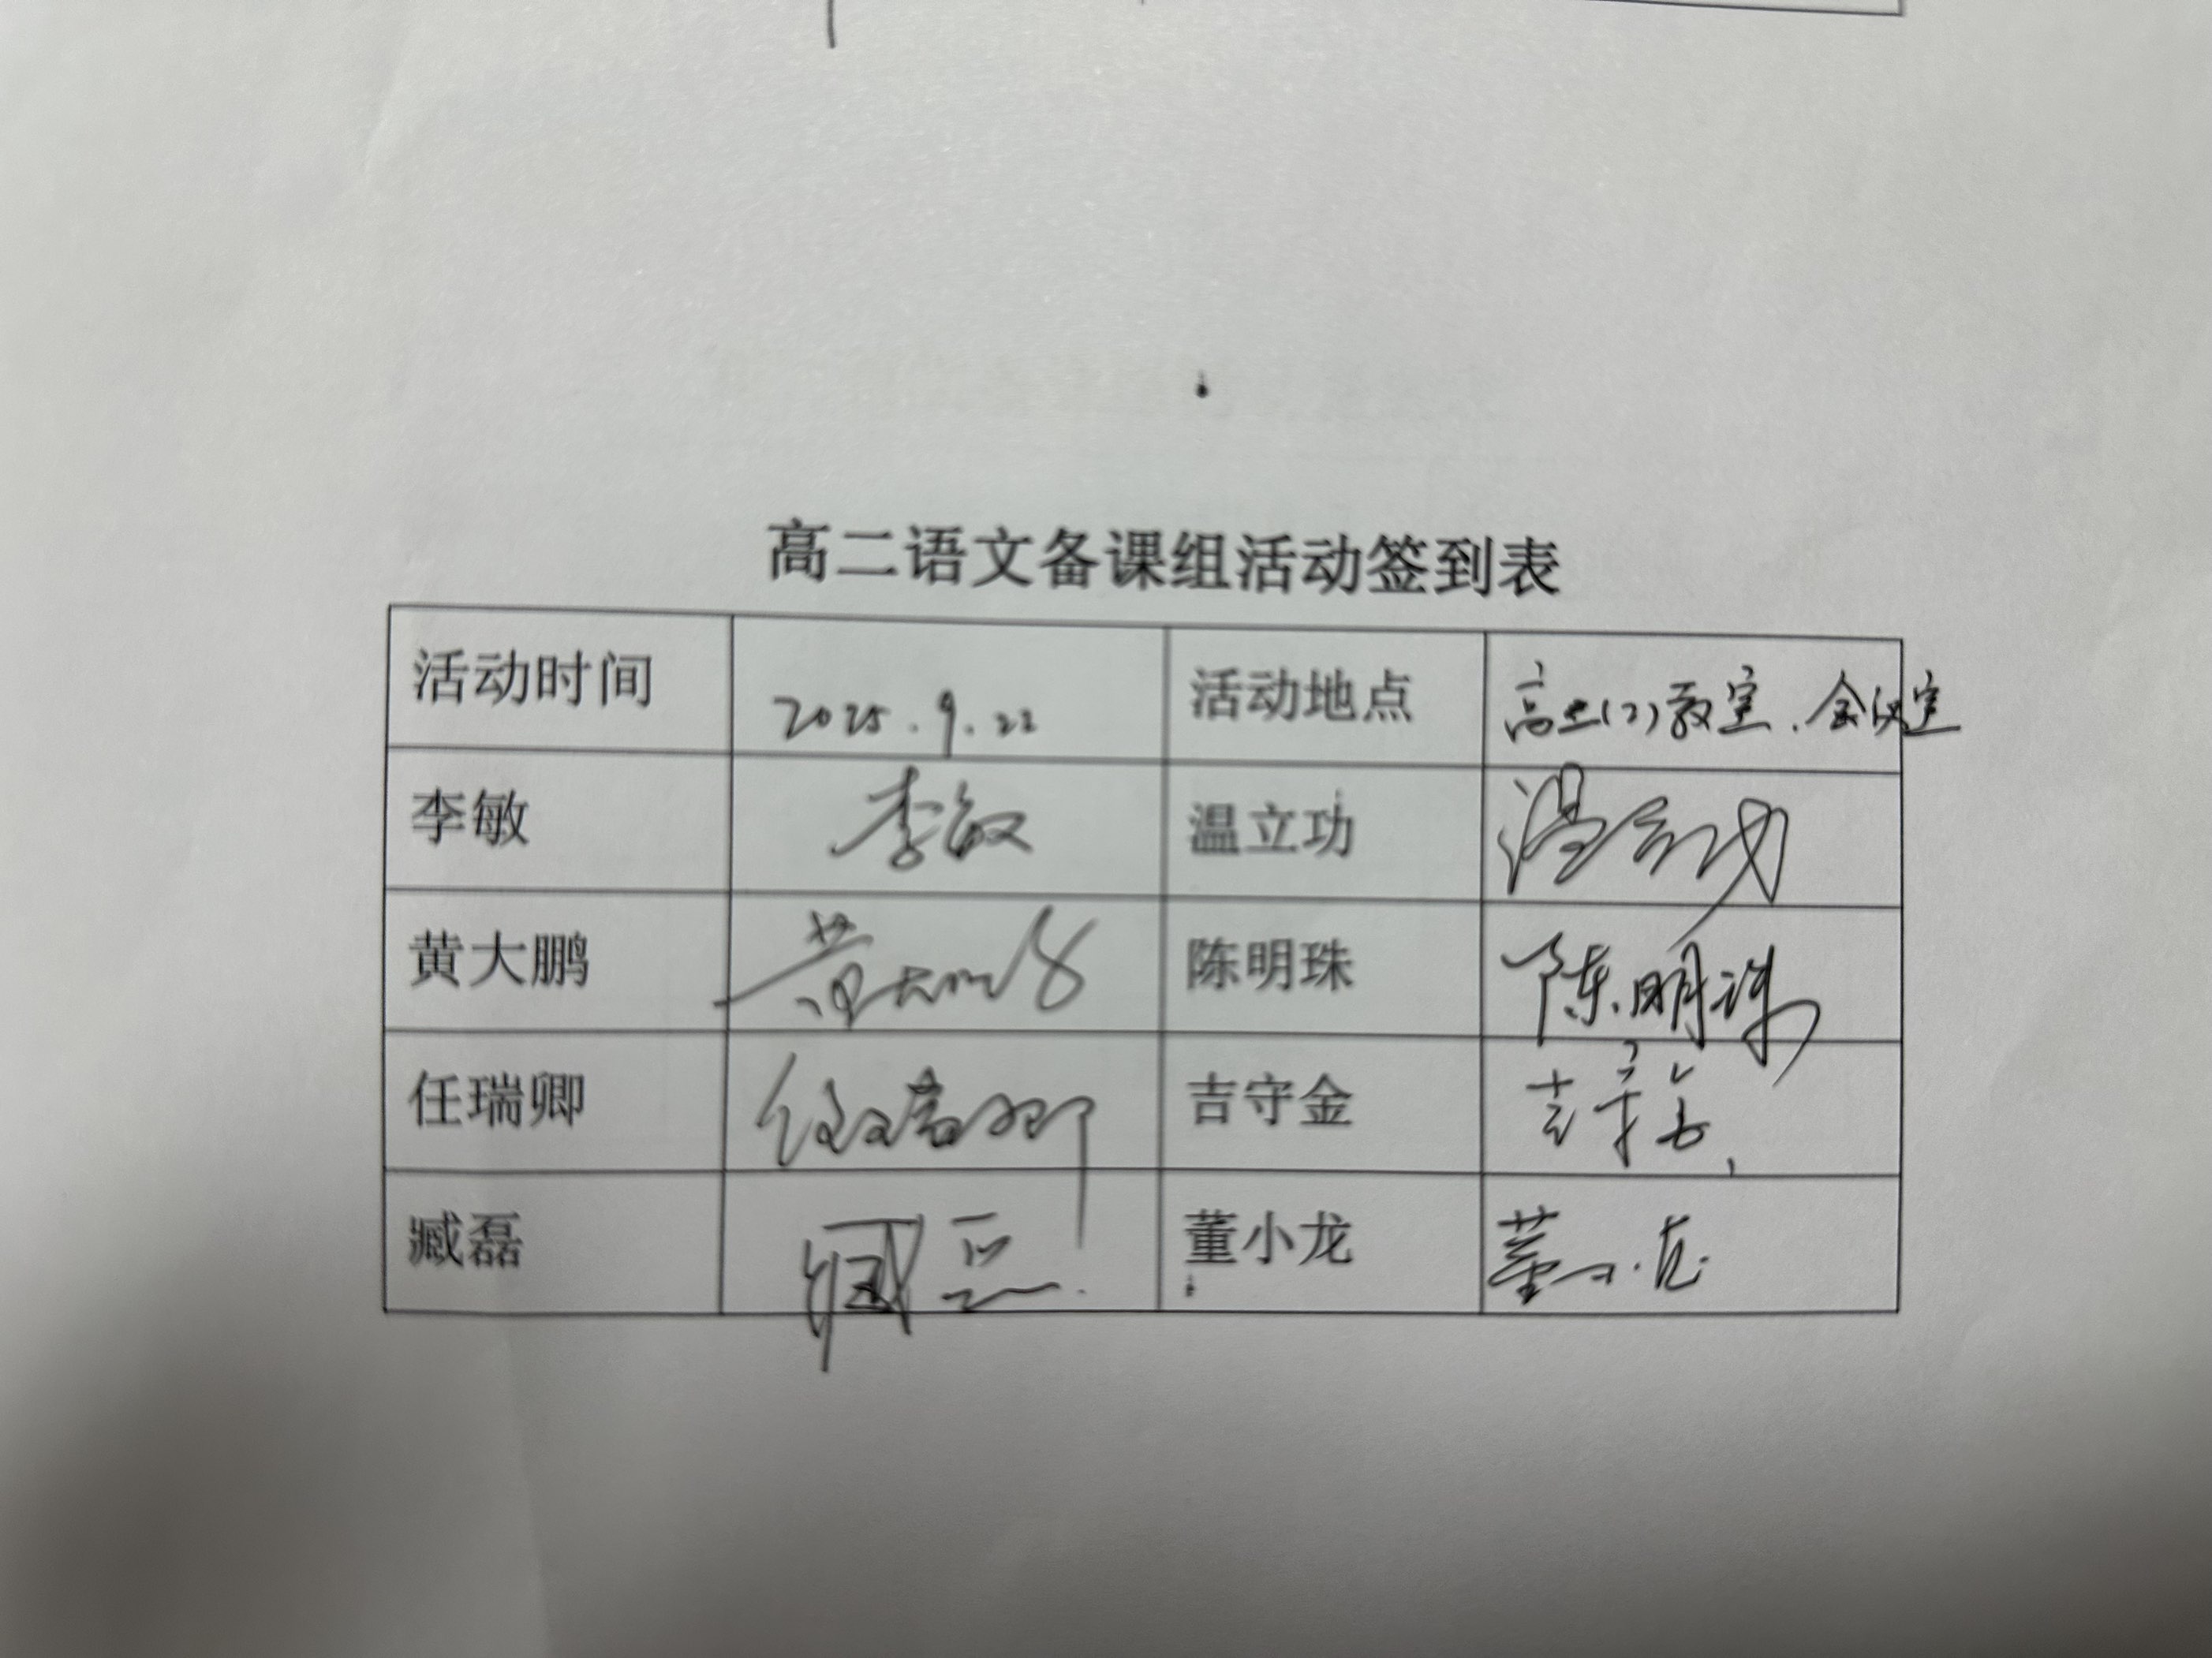 高二语文备课组活动签到表
活动时间 2025.9.22 活动地点 高二(2)教室、会议室
李敏 李敏 温立功 温立功
黄大鹏 黄大鹏 陈明珠 陈明珠
任瑞卿 任瑞卿 吉守金 吉守金
臧磊 臧磊 董小龙 董小龙